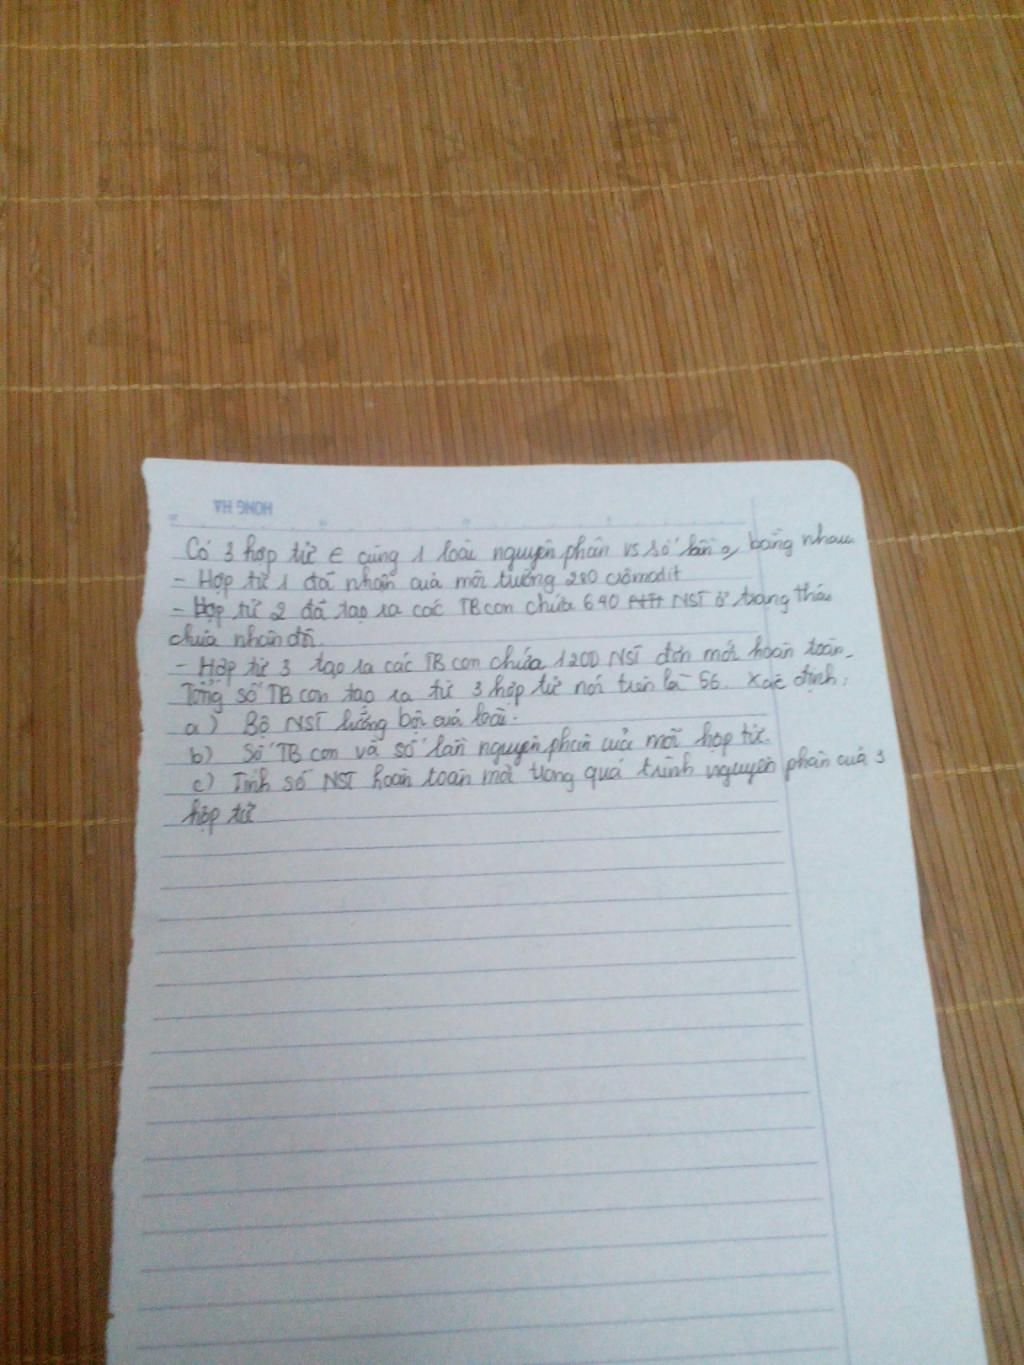 HONG HA
Có 3 hợp tử ∈ cùng 1 loài nguyên phân vs số lần bằng nhau
- Hợp tử 1 đã nhận của môi trường 280 crômatit
- Hợp tử 2 đã tạo ra các TB con chứa 640 NST ở trạng thái
chưa nhân đôi.
- Hợp tử 3 tạo ra các TB con chứa 1200 NST đơn mới hoàn toàn.
Tổng số TB con tạo ra từ 3 hợp tử nói trên là 56. Xác định:
a) Bộ NST lưỡng bội của loài.
b) Số TB con và số lần nguyên phân của mỗi hợp tử.
c) Tính số NST hoàn toàn mới trong quá trình nguyên phân của 3
hợp tử